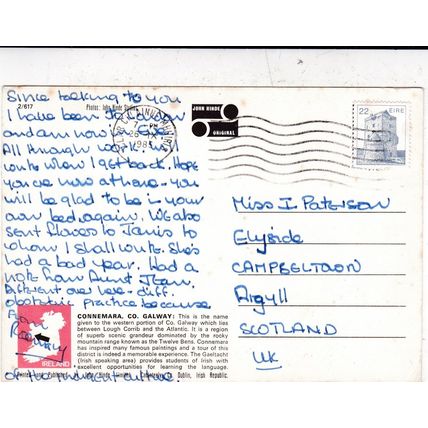 2/617
Photos: John Hinde Studios
JOHN HINDE
ORIGINAL
22 ÉIRE
Since talking to you
I have been to
and am now in
All
write when I get back. Hope
you are now at home - you
will be glad to be in your
own bed again. We also
sent flowers to Janis to
whom I shall write. She's
had a bad year. Had a
note from Aunt Jean.
Different over here - diff.
obstetric practice because
of
Miss I. Paterson
Elyside
CAMPBELTOWN
Argyll
SCOTLAND
UK
IRELAND
CONNEMARA, CO. GALWAY: This is the name
given to the western portion of Co. Galway which lies
between Lough Corrib and the Atlantic. It is a region
of superb scenic grandeur dominated by the rocky
mountain range known as the Twelve Bens. Connemara
has inspired many famous paintings and a tour of this
district is indeed a memorable experience. The Gaeltacht
(Irish speaking area) provides students of Irish with
excellent opportunities for learning the language.
John Hinde Limited, Dublin, Irish Republic.